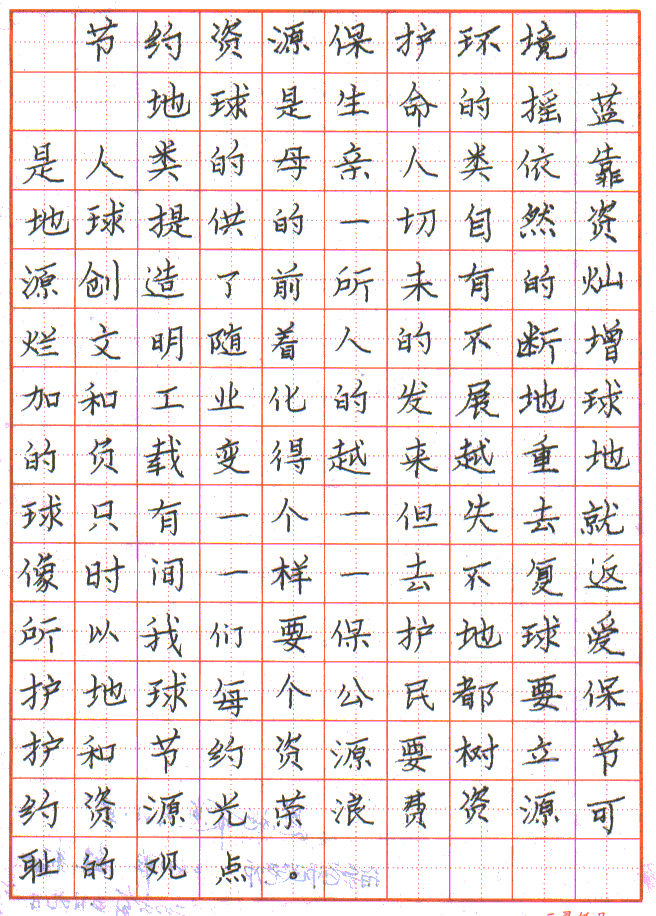 节约资源保护环境
地球是生命的摇蓝
是人类的母亲人类依靠
地球提供的一切自然资
源创造了前所未有的灿
烂文明随着人的不断增
加和工业化的发展地球
的负载变得越来越重地
球只有一个一但失去就
像时间一样一去不复返
所以我们要保护地球爱
护地球每个公民都要保
护和节约资源要树立节
约资源光荣浪费资源可
耻的观点。